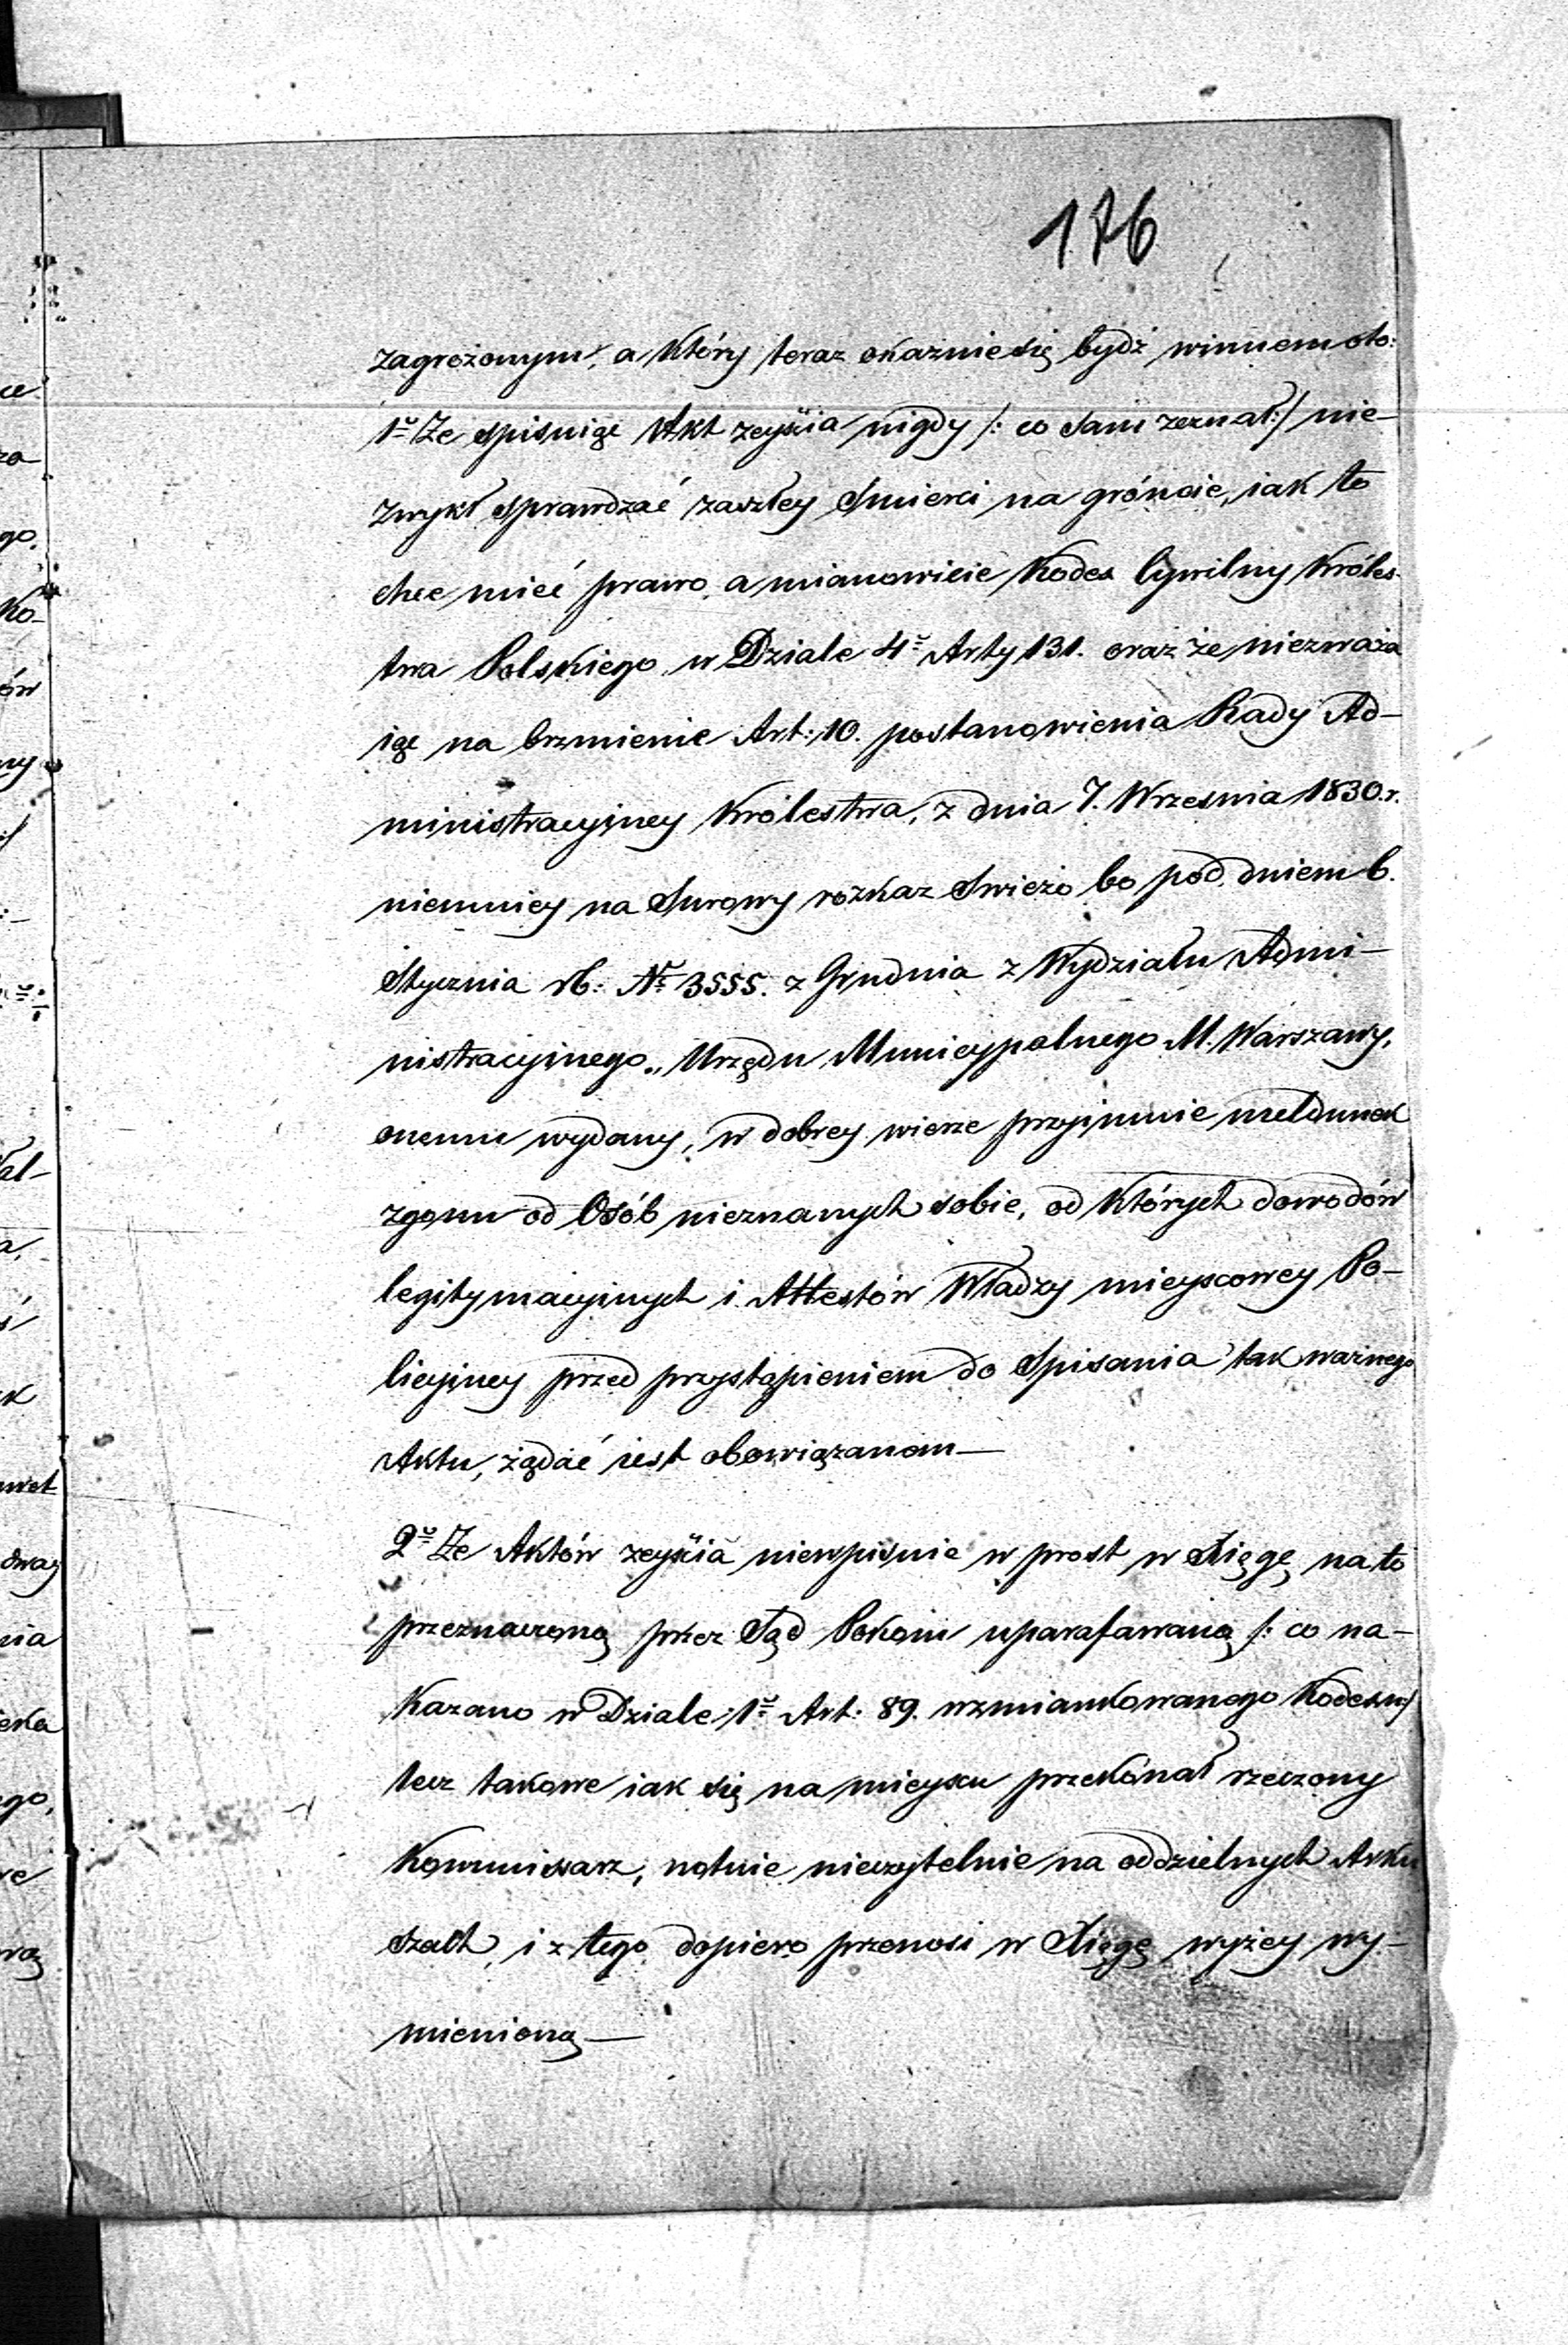 176
zagrożonym, a który teraz okaznie się bydź winnem oto:
1º Że spisuiąc Akt zeyścia nigdy /: co sam zeznał :/ nie-
zwykł sprawdzać zaszłey Smierci na gróncie, iak to
chce mieć prawo, a mianowicie Kodex Cywilny Króles-
twa Polskiego w Dziale 4º Arty 131. oraz że niezważa
iąc na brzmienie Art: 10. postanowienia Rady Ad-
ministracyjney Królestwa, z dnia 7. Wrzesnia 1830.r.
niemniey na Surowy rozkaz Swieżo bo pod dniem 6.
Stycznia rb: Nº 3555. z Grudnia z Wydziału Admi-
nistracyjnego „ Urzędu Municypalnego M. Warszawy,
onemu wydany, w dobrey wierze przyjmuie meldunek
zgonu od Osób nieznanych sobie, od których dowodów
legitymacyjnych i Attestów Władzy mieyscowey Po-
licyjney przed przystąpieniem do Spisania tak ważnego
Aktu, żądać iest obowiązanem —
2º Że Aktów zeyścia niewpisuie w prost w Xięgę na to
przeznaczoną przez Sąd Pokoiu uparafawaną /: co na-
kazano w Dziale 1º Art: 89. wzmiankowanego Kodexu :/
lecz takowe iak się na mieyscu przekónał rzeczony
Kommissarz, notuie nieczytelnie na oddzielnych Arku
szach, i z tego dopiero przenosi w Xięgę wyżey wy-
mienioną —